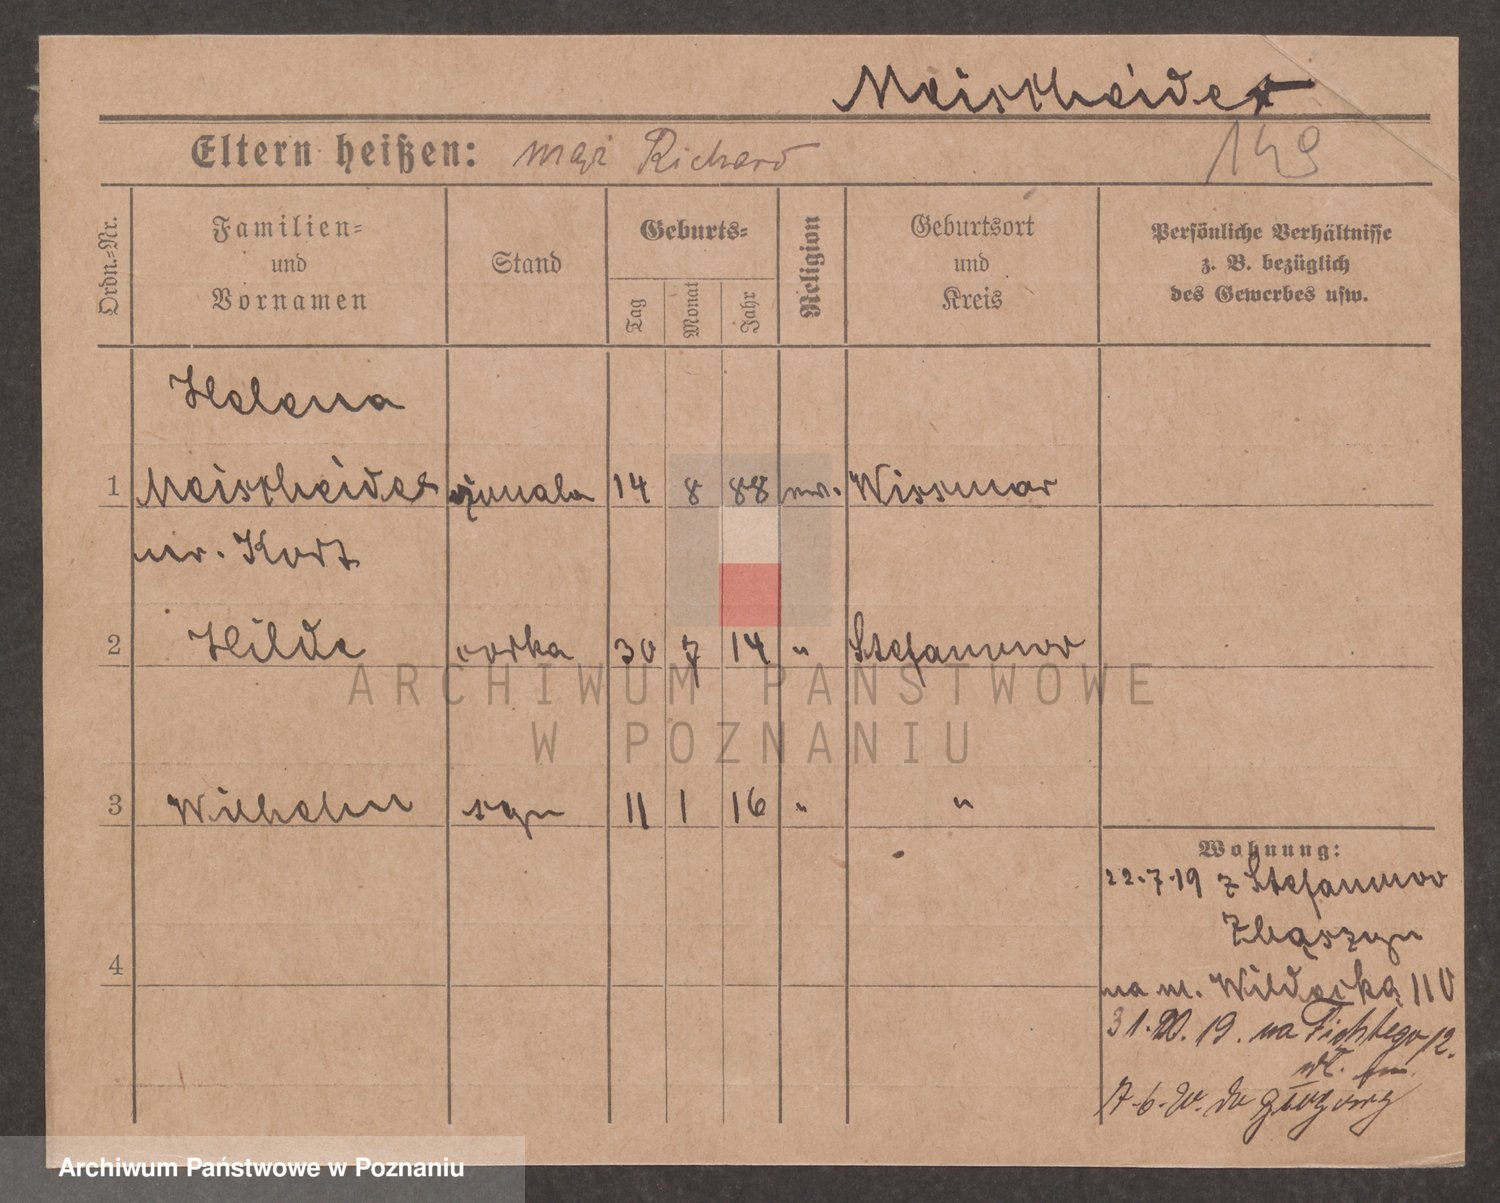 Meischeider
Eltern heißen: mąż Richard 149
Ordn.-Nr.
Familien-
und
Vornamen
Stand
Geburts-
Tag
Monat
Jahr
Religion
Geburtsort
und
Kreis
Persönliche Verhältnisse
z. B. bezüglich
des Gewerbes usw.
Helena
1 Meischeider 14 8 88 ew. Wissmar
ur. Kort
2 Hilda córka 30 7 14 " Stefanowo
3 Wilhelm syn 11 1 16 " "
Wohnung:
22.7.19 z Stefanowo
Zbąszyn
na m. Wildecka 110
4
31.10.19. na Fichtego 12.
7.6.20. do
ARCHIWUM PAŃSTWOWE
W POZNANIU
Archiwum Państwowe w Poznaniu